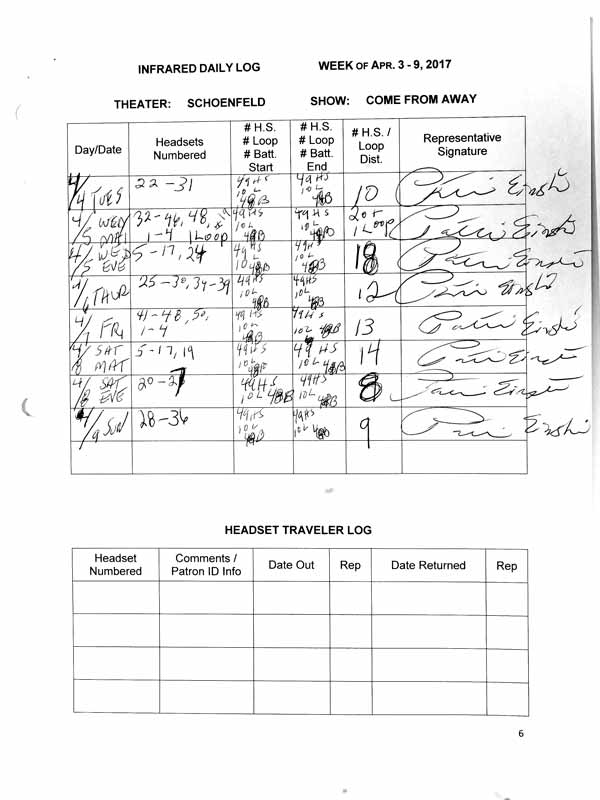 INFRARED DAILY LOG WEEK OF APR. 3 - 9, 2017
THEATER: SCHOENFELD SHOW: COME FROM AWAY
Day/Date Headsets Numbered # H.S. # Loop # Batt. Start # H.S. # Loop # Batt. End # H.S. / Loop Dist. Representative Signature
4/4 TUES 22-31 49HS 10L 48B 49HS 10L 48B 10
4/5 WED MAT 32-46, 48, 1-4 1 LOOP 49HS 10L 48B 49HS 10L 48B 20+ 1 Loop
4/5 WED EVE 5-17, 24 49H 10L 48B 49HS 10L 48B 18
4/6 THUR 25-30, 34-39 49HS 10L 48B 49HS 10L 48B 12
4/7 FRI 41-48, 50, 1-4 49HS 10L 48B 49HS 10L 48B 13
4/8 SAT MAT 5-17, 19 49HS 10L 48B 49 HS 10L 48B 14
4/8 SAT EVE 20-27 49HS 10L 48B 49HS 10L 48B 8
4/9 SUN 28-36 49HS 10L 48B 49HS 10L 48B 9
HEADSET TRAVELER LOG
Headset Numbered Comments / Patron ID Info Date Out Rep Date Returned Rep
6